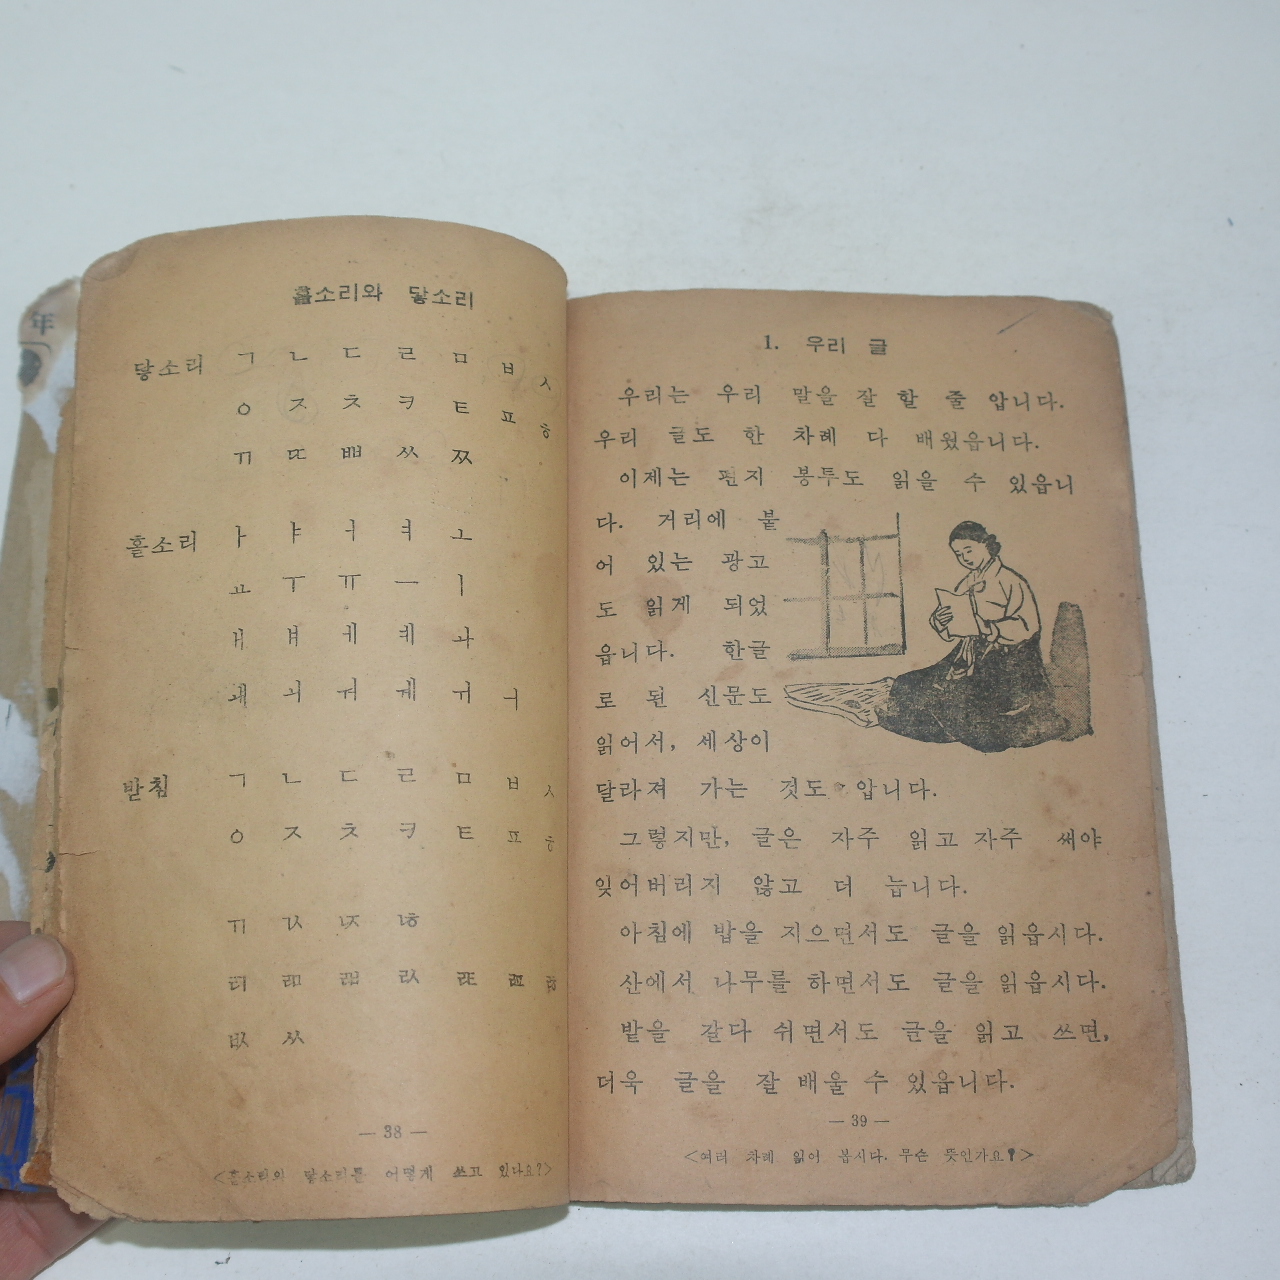 年
홀소리와 닿소리
닿소리 ㄱ ㄴ ㄷ ㄹ ㅁ ㅂ ㅅ
ㅇ ㅈ ㅊ ㅋ ㅌ ㅍ ㅎ
ㄲ ㄸ ㅃ ㅆ ㅉ
홀소리 ㅏ ㅑ ㅓ ㅕ ㅗ
ㅛ ㅜ ㅠ ㅡ ㅣ
ㅐ ㅒ ㅔ ㅖ ㅘ
ㅙ ㅚ ㅝ ㅞ ㅟ ㅢ
받침 ㄱ ㄴ ㄷ ㄹ ㅁ ㅂ ㅅ
ㅇ ㅈ ㅊ ㅋ ㅌ ㅍ ㅎ
ㄲ ㄳ ㄵ ㄶ
ㄺ ㄻ ㄼ ㄽ ㄾ ㄿ ㅀ
ㅄ ㅆ
— 38 —
<홀소리와 닿소리를 어떻게 쓰고 있나요?>
1. 우리 글
우리는 우리 말을 잘 할 줄 압니다.
우리 글도 한 차례 다 배웠읍니다.
이제는 편지 봉투도 읽을 수 있읍니
다. 거리에 붙
어 있는 광고
도 읽게 되었
읍니다. 한글
로 된 신문도
읽어서, 세상이
달라져 가는 것도 압니다.
그렇지만, 글은 자주 읽고 자주 써야
잊어버리지 않고 더 늡니다.
아침에 밥을 지으면서도 글을 읽읍시다.
산에서 나무를 하면서도 글을 읽읍시다.
밭을 갈다 쉬면서도 글을 읽고 쓰면,
더욱 글을 잘 배울 수 있읍니다.
— 39 —
<여러 차례 읽어 봅시다. 무슨 뜻인가요?>